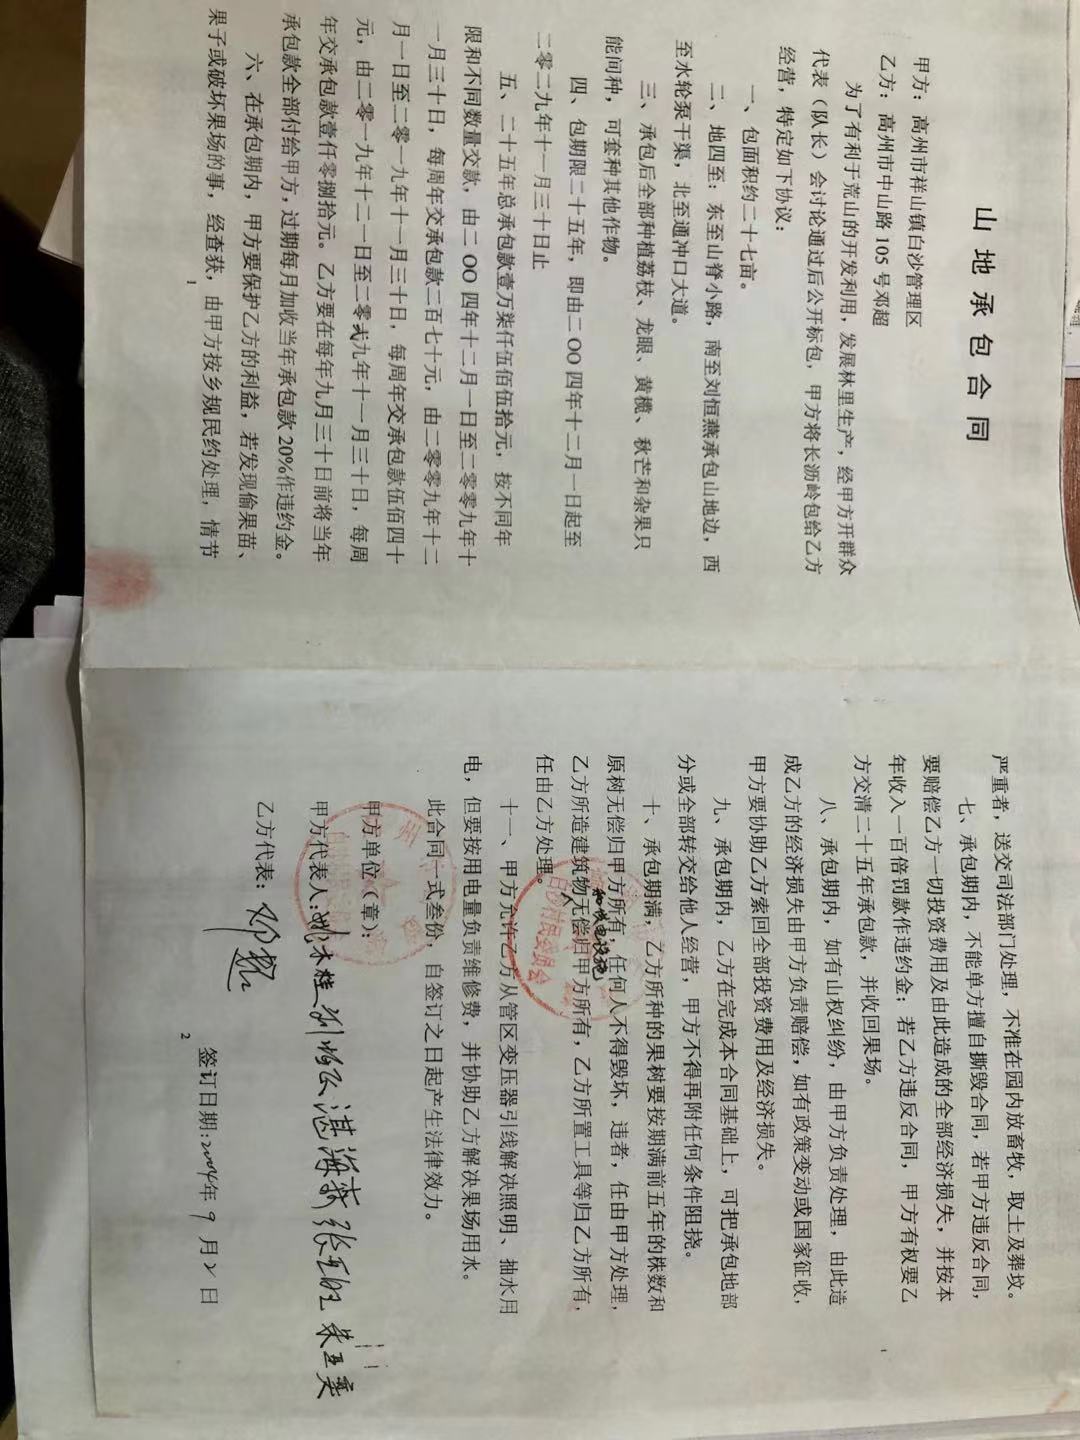 山地承包合同
甲方：高州市祥山镇白沙管理区
乙方：高州市中山路105号邓超
为了有利于荒山的开发利用，发展林里生产，经甲方开群众
代表（队长）会讨论通过后公开标包，甲方将长沥岭包给乙方
经营，特定如下协议：
一、包面积约二十七亩。
二、地四至：东至山脊小路，南至刘恒燕承包山地边，西
至水轮泵干渠，北至通冲口大道。
三、承包后全部种植荔枝、龙眼、黄榄、秋芒和杂果只
能间种，可套种其他作物。
四、包期限二十五年，即由二OO四年十二月一日起至
二零二九年十一月三十日止
五、二十五年总承包款壹万柒仟伍佰伍拾元，按不同年
限和不同数量交款，由二OO四年十二月一日至二零零九年十
一月三十日，每周年交承包款二百七十元，由二零零九年十二
月一日至二零一九年十一月三十日，每周年交承包款伍佰四十
元，由二零一九年十二一日至二零弍九年十一月三十日，每周
年交承包款壹仟零捌拾元。乙方要在每年九月三十日前将当年
承包款全部付给甲方，过期每月加收当年承包款20%作违约金。
六、在承包期内，甲方要保护乙方的利益，若发现偷果苗、
果子或破坏果场的事，经查获，由甲方按乡规民约处理，情节
1
严重者，送交司法部门处理，不准在园内放畜牧，取土及葬坟。
七、承包期内，不能单方擅自撕毁合同，若甲方违反合同，
要赔偿乙方一切投资费用及由此造成的全部经济损失，并按本
年收入一百倍罚款作违约金；若乙方违反合同，甲方有权要乙
方交清二十五年承包款，并收回果场。
八、承包期内，如有山权纠纷，由甲方负责处理，由此造
成乙方的经济损失由甲方负责赔偿，如有政策变动或国家征收，
甲方要协助乙方索回全部投资费用及经济损失。
九、承包期内，乙方在完成本合同基础上，可把承包地部
分或全部转交给他人经营，甲方不得再附任何条件阻挠。
十、承包期满，乙方所种的果树要按期满前五年的株数和
原树无偿归甲方所有，任何人不得毁坏，违者，任由甲方处理，
和供电设施
乙方所造建筑物无偿归甲方所有，乙方所置工具等归乙方所有，
任由乙方处理。
白沙村民委员会
十一、甲方允许乙方从管区变压器引线解决照明、抽水用
电，但要按用电量负责维修费，并协助乙方解决果场用水。
此合同一式叁份，自签订之日起产生法律效力。
甲方单位（章）：
甲方代表人：
乙方代表：邓超
签订日期：2004年9月2日
2